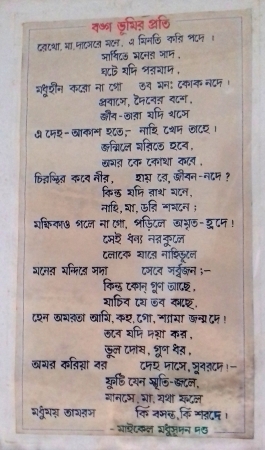 বঙ্গ ভূমির প্রতি
রেখো, মা, দাসেরে মনে, এ মিনতি করি পদে ।
সাধিতে মনের সাদ,
ঘটে যদি পরমাদ,
মধুহীন করো না গো তব মনঃ কোকনদে ।
প্রবাসে, দৈবের বশে,
জীব-তারা যদি খসে
এ দেহ-আকাশ হতে,- নাহি খেদ তাহে ।
জন্মিলে মরিতে হবে,
অমর কে কোথা কবে,
চিরস্থির কবে নীর, হায় রে, জীবন-নদে ?
কিন্তু যদি রাখ মনে,
নাহি, মা, ডরি শমনে ;
মক্ষিকাও গলে না গো, পড়িলে অমৃত-হ্রদে !
সেই ধন্য নরকুলে
লোকে যারে নাহি ভুলে
মনের মন্দিরে সদা সেবে সর্বজন ;-
কিন্তু কোন্ গুণ আছে,
যাচিব যে তব কাছে,
হেন অমরতা আমি, কহ, গো, শ্যামা জন্মদে !
তবে যদি দয়া কর,
ভুল দোষ, গুণ ধর,
অমর করিয়া বর দেহ দাসে, সুবরদে !-
ফুটি যেন স্মৃতি-জলে,
মানসে, মা, যথা ফলে
মধুময় তামরস কি বসন্ত, কি শরদে !
- মাইকেল মধুসূদন দত্ত